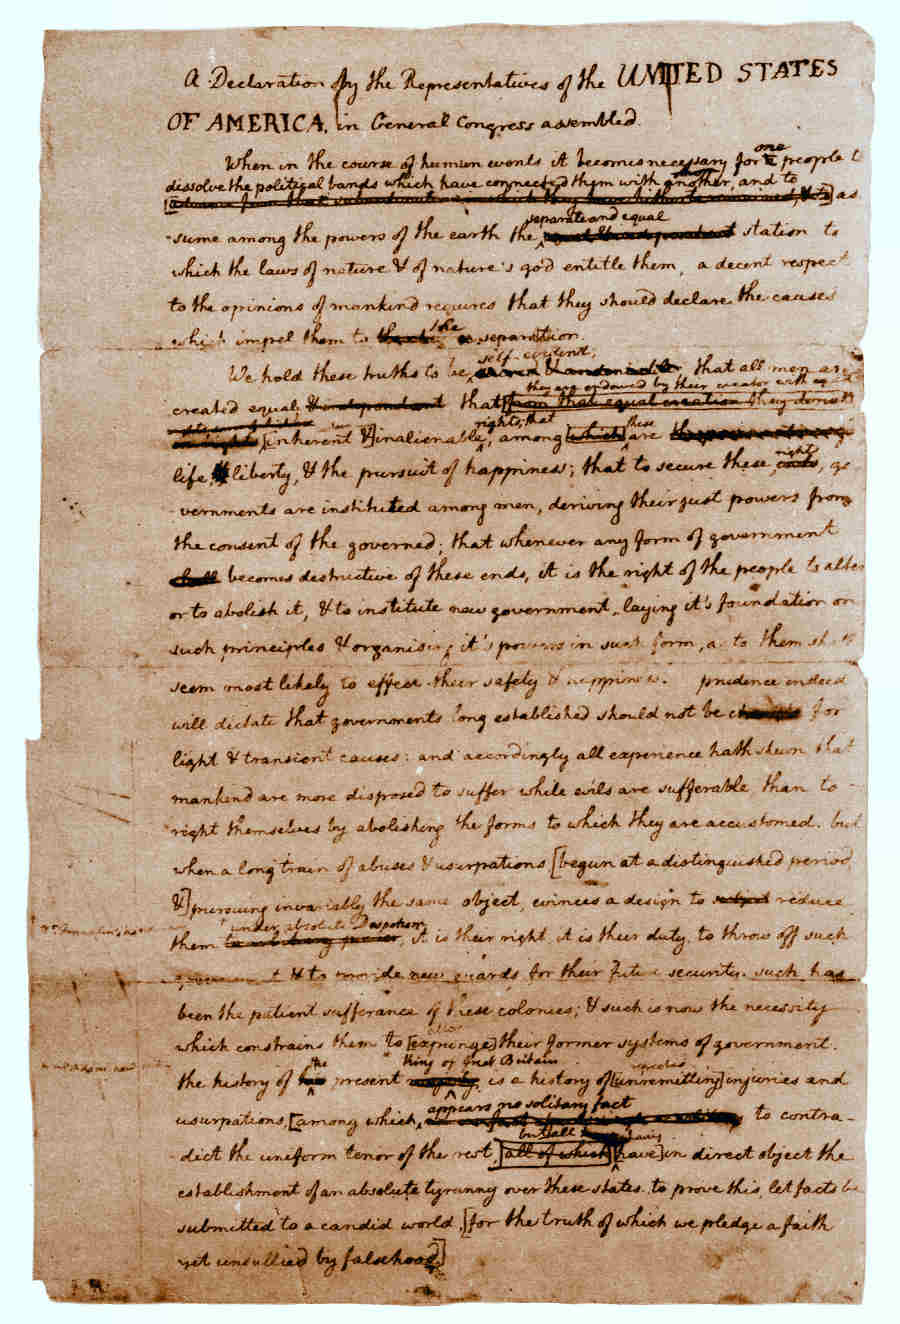 A Declaration by the Representatives of the UNITED STATES
OF AMERICA, in General Congress assembled.
When in the course of human events it becomes necessary for one people to
dissolve the political bands which have connected them with another, and to
as
separate and equal
sume among the powers of the earth the station to
which the laws of nature & of nature's god entitle them, a decent respect
to the opinions of mankind requires that they should declare the causes
the
which impel them to separation.
self-evident;
We hold these truths to be that all men are
they are endowed by their creator with
created equal & independent that from that equal creation they derive
rights; that these
[inherent &] inalienable, among which are
rights
life, liberty, & the pursuit of happiness; that to secure these ends, go
vernments are instituted among men, deriving their just powers from
the consent of the governed; that whenever any form of government
shall becomes destructive of these ends, it is the right of the people to alter
or to abolish it, & to institute new government, laying it's foundation on
such principles & organising it's powers in such form, as to them shall
seem most likely to effect their safety & happiness. prudence indeed
will dictate that governments long established should not be for
light & transient causes: and accordingly all experience hath shewn that
mankind are more disposed to suffer while evils are sufferable, than to
right themselves by abolishing the forms to which they are accustomed. but
when a long train of abuses & usurpations [begun at a distinguished period,
&] pursuing invariably the same object, evinces a design to subject reduce
under absolute Despotism
them it is their right, it is their duty, to throw off such
government & to provide new guards for their future security. such has
been the patient sufferance of these colonies; & such is now the necessity
alter
which constrains them to [expunge] their former systems of government.
the King of Great Britain repeated
the history of present majesty, is a history of [unremitting] injuries and
appears no solitary fact
usurpations, [among which, to contra-
but all
dict the uniform tenor of the rest, all of which have] in direct object the
establishment of an absolute tyranny over these states. to prove this, let facts be
submitted to a candid world, [for the truth of which we pledge a faith
yet unsullied by falsehood]